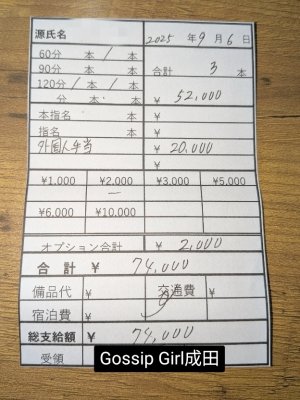 源氏名 2025年9月6日
60分 本 / 本
90分 本 本 合計 3 本
120分 / 本 / 本
分 本 本 ¥ 52,000
本指名 ¥
指名 ¥
外国人手当 ¥ 20,000
¥1,000 ¥2,000 ¥3,000 ¥5,000
¥6,000 ¥10,000
オプション合計 ¥ 2,000
合計 ¥ 74,000
備品代 ¥ 交通費
宿泊費 ¥ ¥
総支給額 ¥ 74,000
受領
Gossip Girl成田